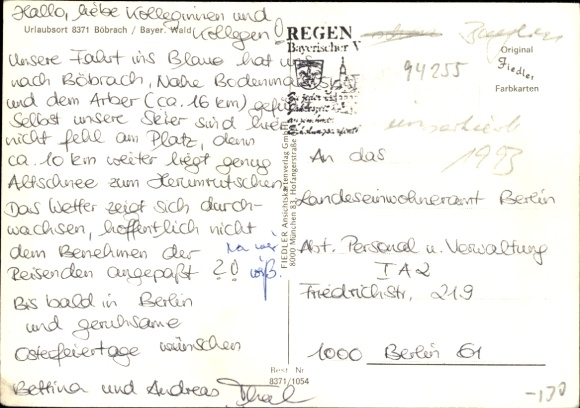 Hallo, liebe Kolleginnen und
Urlaubsort 8371 Böbrach / Bayer. Wald
Kollegen!
Unsere Fahrt ins Blaue hat uns
nach Böbrach, Nähe Bodenmais
und dem Arber (ca. 16 km) geführt.
Selbst unsere Skier sind hier
nicht fehl am Platz, denn
ca. 10 km weiter liegt genug
Altschnee zum Herumrutschen.
Das Wetter zeigt sich durch-
wachsen, hoffentlich nicht
dem Benehmen der
Reisenden angepaßt ?!
Na wir
Bis bald in Berlin
und geruhsame
Osterfeiertage wünschen
Bettina und Andreas
REGEN
Bayerischer
FIEDLER Ansichtskartenverlag
8000 München 83, Hofangerstraße
Best. Nr
8371/1054
94255
Original
Fiedler
Farbkarten
1993
An das
Landeseinwohneramt Berlin
Abt. Personal u. Verwaltung
I A 2
Friedrichstr. 219
1000 Berlin 61
-130